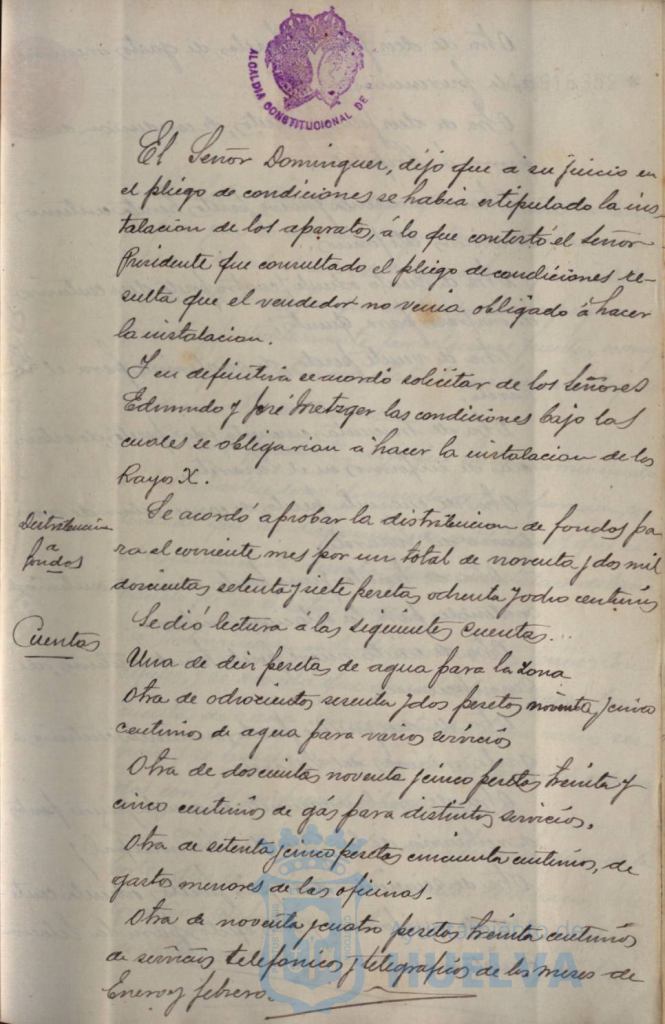 ALCALDIA CONSTITUCIONAL DE
El Señor Dominguez, dijo que á su juicio en
el pliego de condiciones se habia estipulado la ins-
talacion de los aparatos, á lo que contestó el Señor
Presidente que consultado el pliego de condiciones re-
sulta que el vendedor no venia obligado á hacer
la instalacion.
Y en definitiva se acordó solicitar de los Señores
Edmundo y José Metzger las condiciones bajo las
cuales se obligarian á hacer la instalacion de los
Rayos X.
Distribucion
de
fondos
Se acordó aprobar la distribucion de fondos pa-
ra el corriente mes por un total de noventa y dos mil
doscientas setenta y siete pesetas ochenta y ocho centimos
Cuentas
Se dió lectura á las siguientes cuentas...
Una de diez pesetas de agua para la zona
Otra de ochocientos sesenta y dos pesetas noventa y cinco
centimos de agua para varios servicios
Otra de doscientas noventa y cinco pesetas treinta y
cinco centimos de gás para distintos servicios.
Otra de setenta y cinco pesetas cincuenta centimos, de
gastos menores de las oficinas.
Otra de noventa y cuatro pesetas treinta centimos
de servicios telefonicos y telegraficos de los meses de
Enero y febrero.
Ayuntamiento de
HUELVA